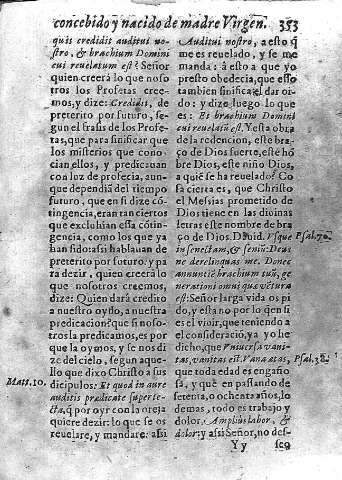 concebido y nacido de madre Virgen. 353
quis credidit auditui no-
stro, & brachium Domini
cui reuelatum est? Señor
quien creerà lo que noso
tros los Profetas cree-
mos, y dize: Credidit, de
preterito por futuro, se-
gun el frasis de los Profe-
tas, que para sinificar que
los misterios que cono-
cian ellos, y predicauan
con luz de profecia, aun-
que dependiā del tiempo
futuro, que en si dize cō-
tingencia, eran tan ciertos
que excluhian essa cōtin-
gencia, como los que ya
han sido: assi hablauan de
preterito por futuro: y pa
ra dezir, quien creerà lo
que nosotros creemos,
dize: Quien darà credito
a nuestro oydo, a nuestra
predicacion? que si noso-
tros la predicamos, es por
que la oymos, y se nos di-
ze del cielo, segun aque-
llo que dixo Christo a sus
Matt. 10. dicipulos: Et quod in aure
auditis prædicate super te-
cta, q̄ por oyr con la oreja
quiere dezir: lo que se os
reuelare, y mandare: assi
Auditui nostro, a esto q̄
me es reuelado, y se me
manda: à esto a que yo
presto obedecia, que esso
tambien sinifica el dar oi-
do: y dize luego lo que
es: Et brachium Domini
cui reuelatū est. Y esta obra
de la redencion, este bra-
ço de Dios fuerte, este hō
bre Dios, este niño Dios,
a quiē se ha reuelado? Co
sa cierta es, que Christo
el Messias prometido de
Dios tiene en las diuinas
letras este nombre de bra-
ço de Dios. Dauid. Vsque Psal. 70.
in senectam, & seniū: Deus
ne derelinquas me. Donec
annuntiē brachium tuū, ge
nerationi omni quæ vētura
est: Señor larga vida os pi
do, y esta no por lo q̄ en si
es el viuir, que teniendo a
el consideraciō, ya yo he
dicho, que Vniuersa vani-
tas, vanitas est. Vana ætas, Psal. 38.
que toda edad es engaño
sa, y q̄ en passando de
setenta, o ochenta años, lo
demas, todo es trabajo y
dolor. Amplius labor, &
dolor: y assi Señor, no des-
Y y seo